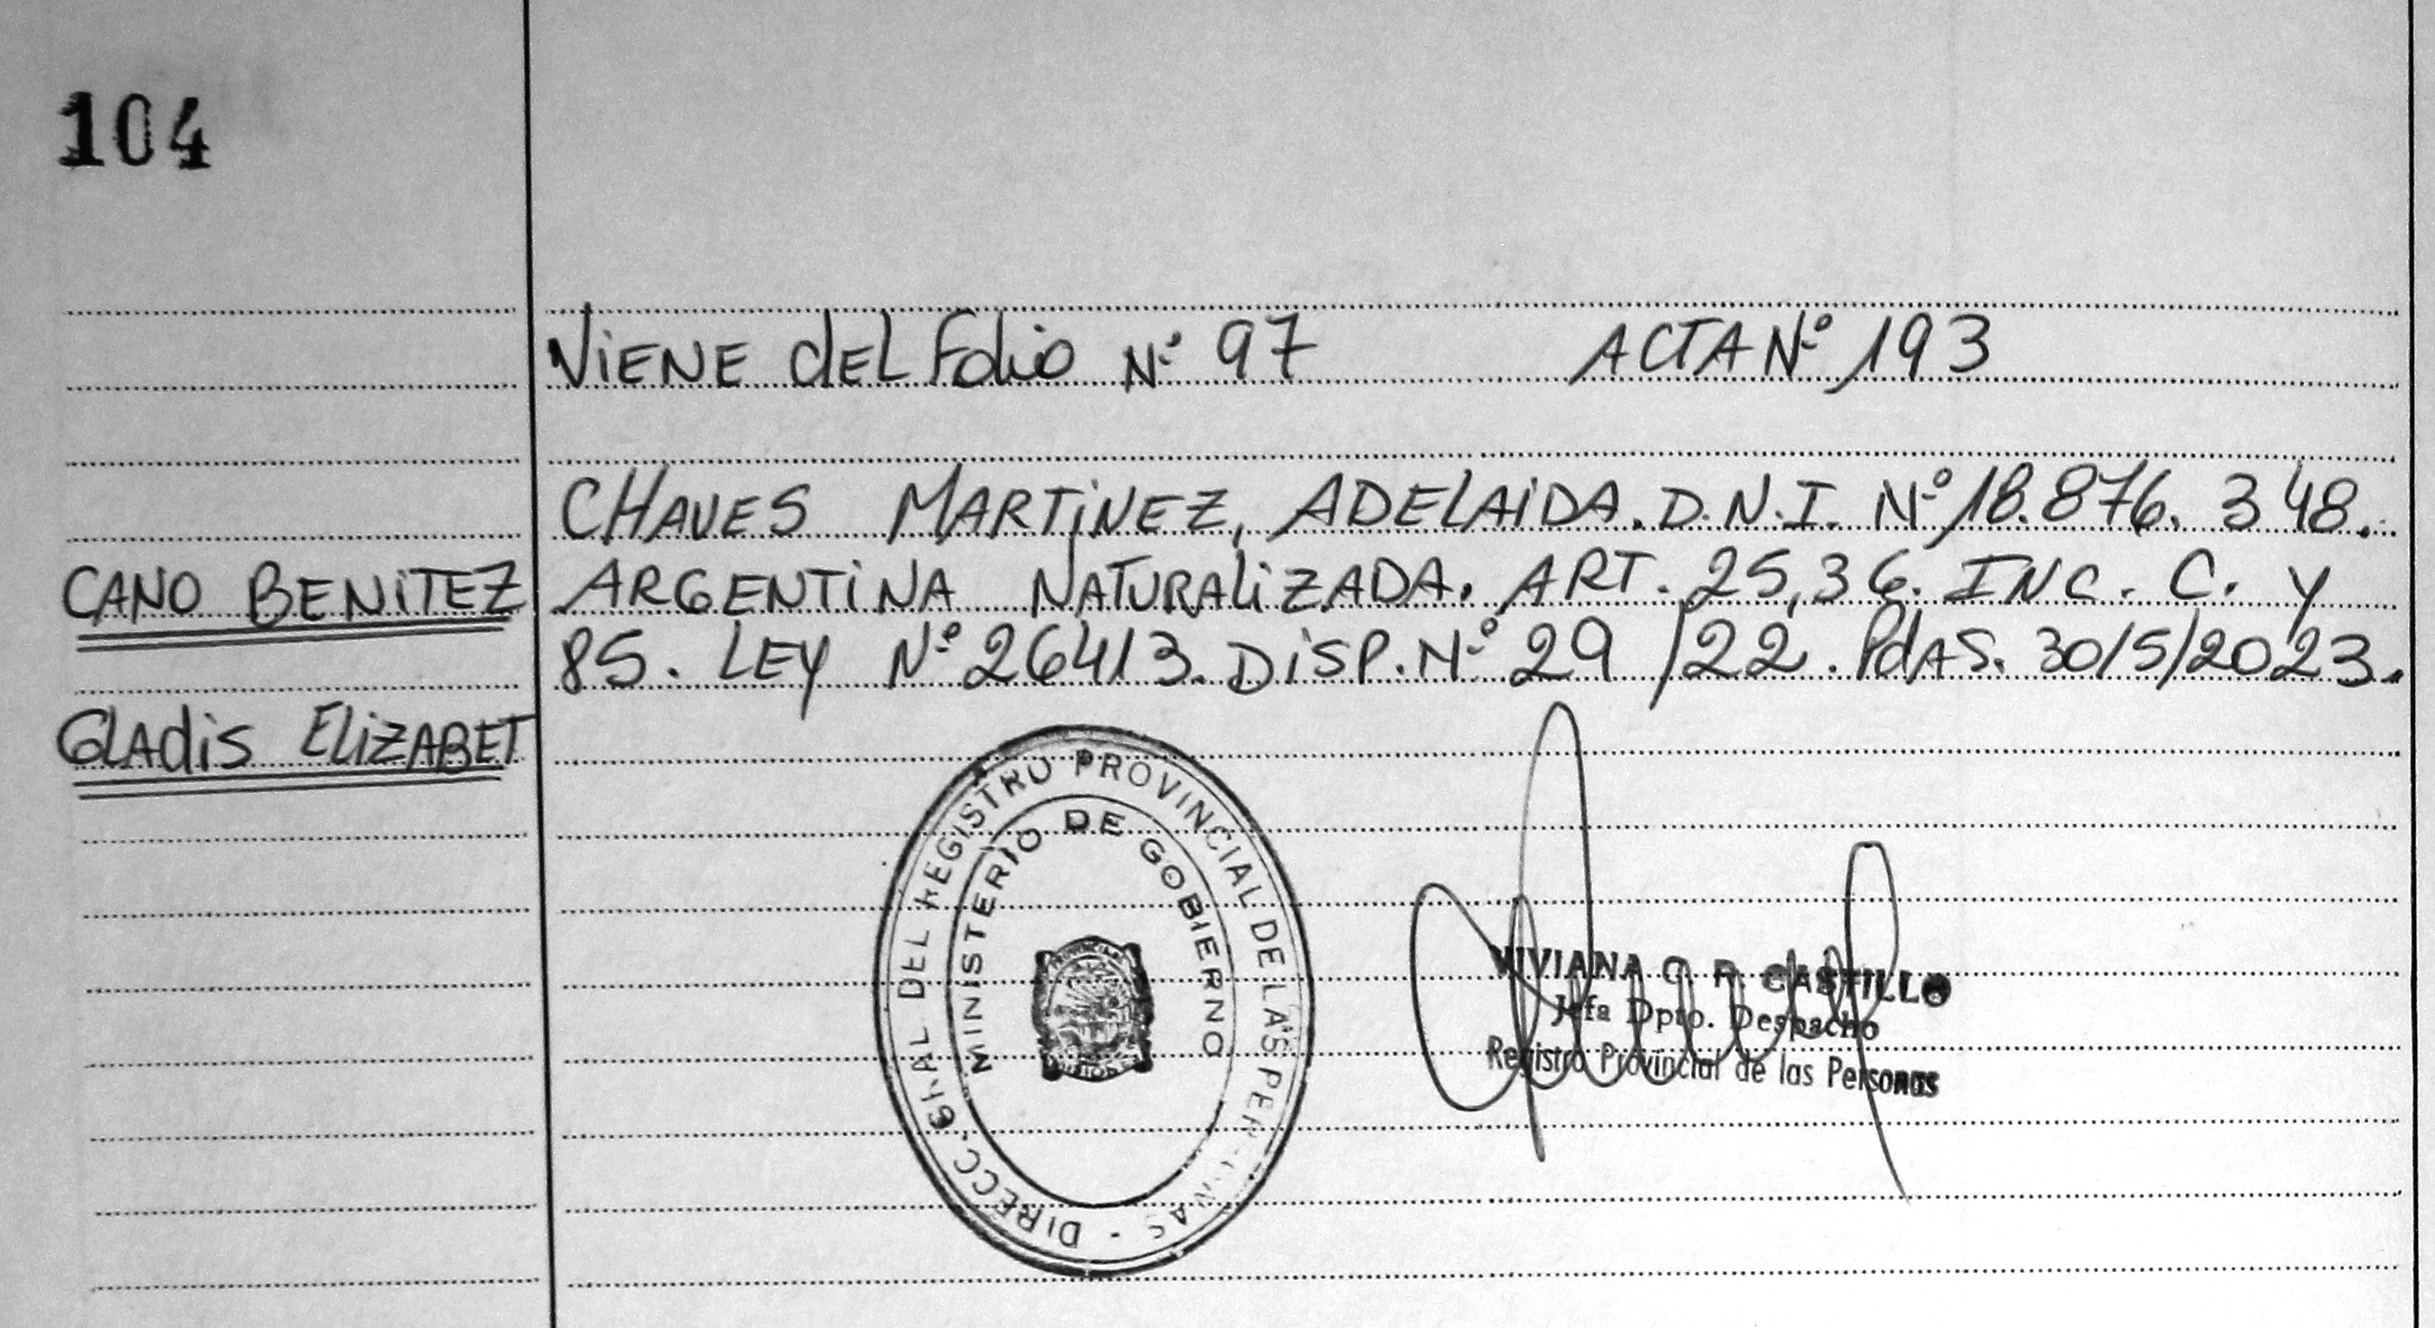 104
VIENE dEL Folio Nº 97 ACTA Nº 193
CHAVES MARTINEZ, ADELAIDA. D.N.I. Nº 18.876.348.
CANO BENITEZ
ARGENTINA NATURALIZADA. ART. 25,36. INC. C. y
85. LEY Nº 26413. DISP. Nº 29/22. PdAS. 30/5/2023.
GLAdis ELIZABET
DIRECC. GRAL DEL REGISTRO PROVINCIAL DE LAS PERSONAS
MINISTERIO DE GOBIERNO
VIVIANA C. R. CASTILLO
Jefa Dpto. Despacho
Registro Provincial de las Personas